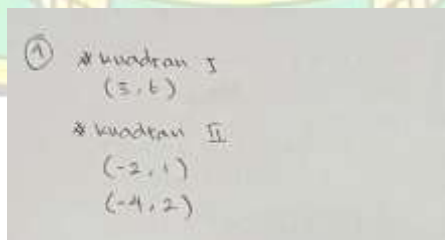 1 * kuadran I
(5, 6)
* kuadran II
(-2, 1)
(-4, 2)